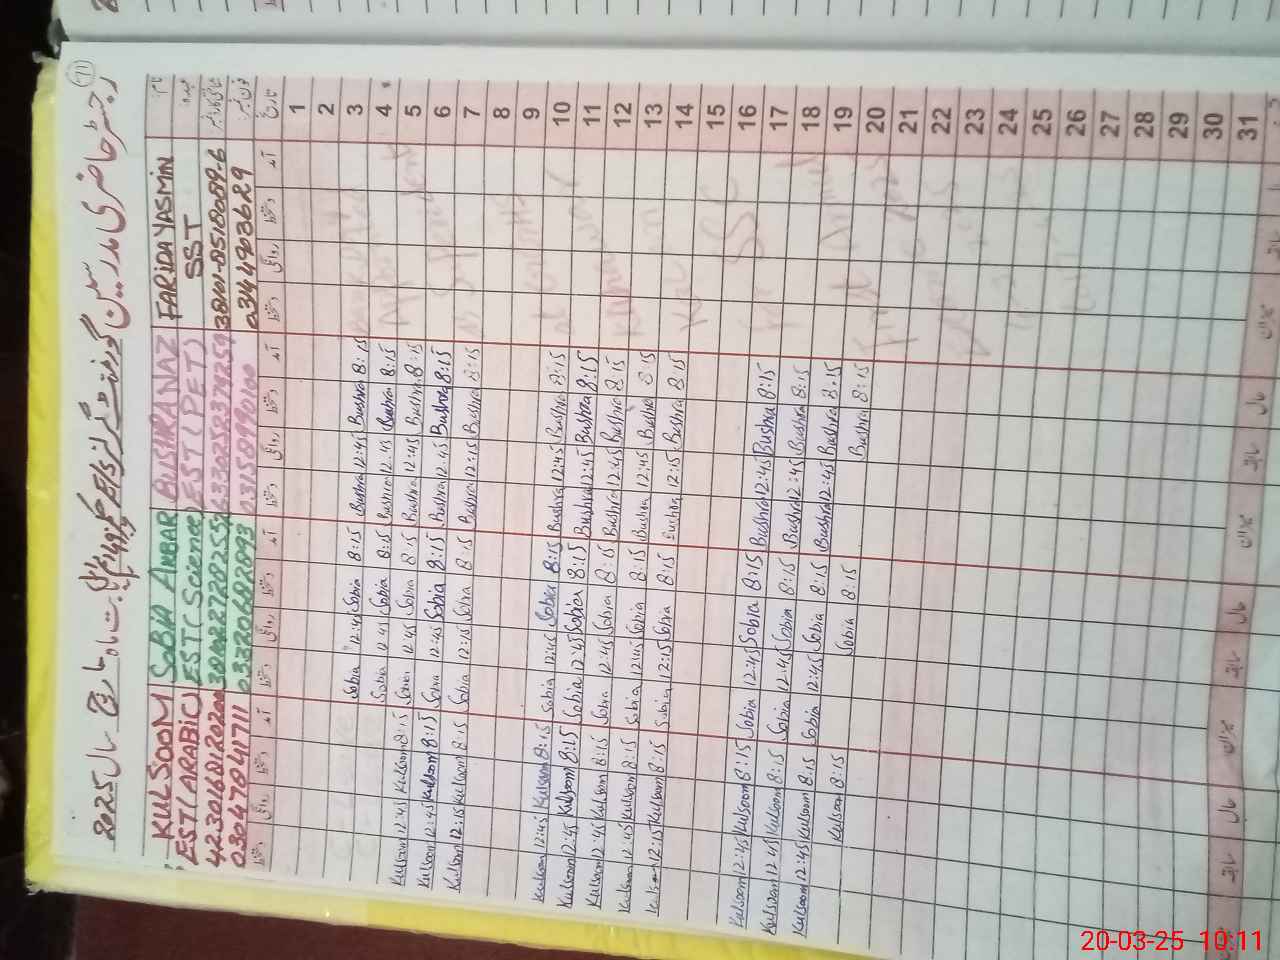 رجسٹر حاضری مدرسین گورنمنٹ گرلز ہائی بابت ماہ مارچ سال 2025
71
KULSOOM SOBIA AMBAR BUSHRA NAZ FARIDA YASMIN نام
EST(ARABIC) EST(Science) EST(PET) SST عہدہ
0304704 1711 03320682893 03158990100 0344903629 فون نمبر
دستخط روانگی دستخط آمد دستخط روانگی دستخط آمد دستخط روانگی دستخط آمد دستخط روانگی دستخط آمد تاریخ
1
2
Sobia 12:45 Sobia 8:15 Bushra 12:45 Bushra 8:15 3
Sobia 12 45 Sobia 8:15 Bushra 12 45 Bushra 8:15 4
Kulsoom 12:45 Kulsoom 8:15 Sobia 12 45 Sobia 8:15 Bushra 12:45 Bushra 8:15 5
Kulsoom 12:45 Kulsoom 8:15 Sobia 12:45 Sobia 8:15 Bushra 12:45 Bushra 8:15 6
Kulsoom 12:15 Kulsoom 8:15 Sobia 12:15 Sobia 8:15 Bushra 12:15 Bushra 8:15 7
8
9
Kulsoom 12:45 Kulsoom 8:15 Sobia 12:45 Sobia 8:15 Bushra 12:45 Bushra 8:15 10
Kulsoom 12:45 Kulsoom 8:15 Sobia 12:45 Sobia 8:15 Bushra 12:45 Bushra 8:15 11
Kulsoom 12:45 Kulsoom 8:15 Sobia 12:45 Sobia 8:15 Bushra 12:45 Bushra 8:15 12
Kulsoom 12:45 Kulsoom 8:15 Sobia 12:45 Sobia 8:15 Bushra 12:45 Bushra 8:15 13
Kulsoom 12:15 Kulsoom 8:15 Sobia 12:15 Sobia 8:15 Bushra 12:15 Bushra 8:15 14
15
16
Kulsoom 12:45 Kulsoom 8:15 Sobia 12:45 Sobia 8:15 Bushra 12:45 Bushra 8:15 17
Kulsoom 12:45 Kulsoom 8:15 Sobia 12:45 Sobia 8:15 Bushra 12:45 Bushra 8:15 18
Kulsoom 12:45 Kulsoom 8:15 Sobia 12:45 Sobia 8:15 Bushra 12:45 Bushra 8:15 19
Kulsoom 8:15 Sobia 8:15 Bushra 8:15 20
21
22
23
24
25
26
27
28
29
30
31
میزان سابقہ حال میزان سابقہ حال میزان سابقہ حال میزان سابقہ
20-03-25 10:11